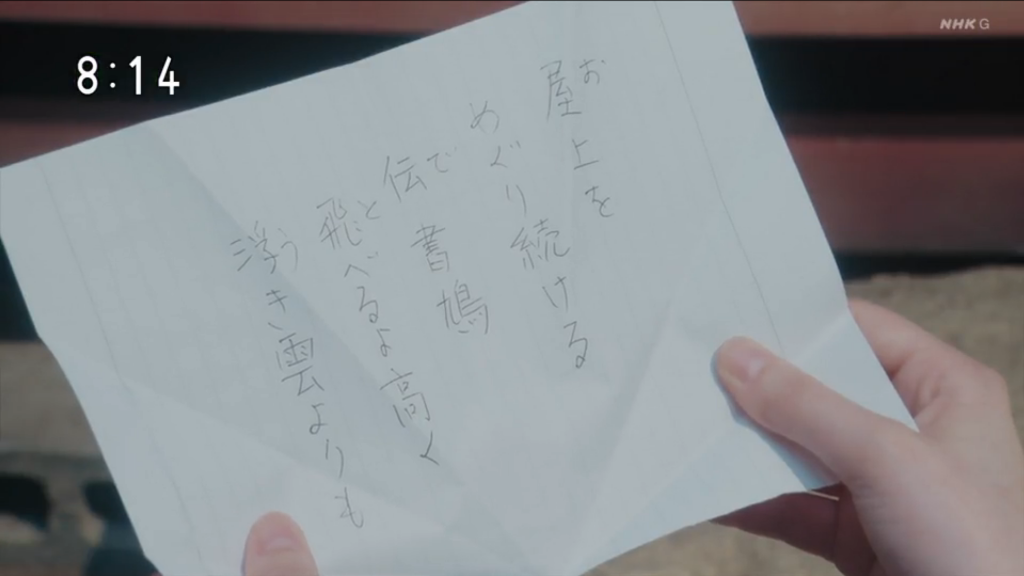 8:14
NHK G
屋上を
めぐり続ける
伝書鳩
飛べるよ高く
浮き雲よりも
お
で
と
う